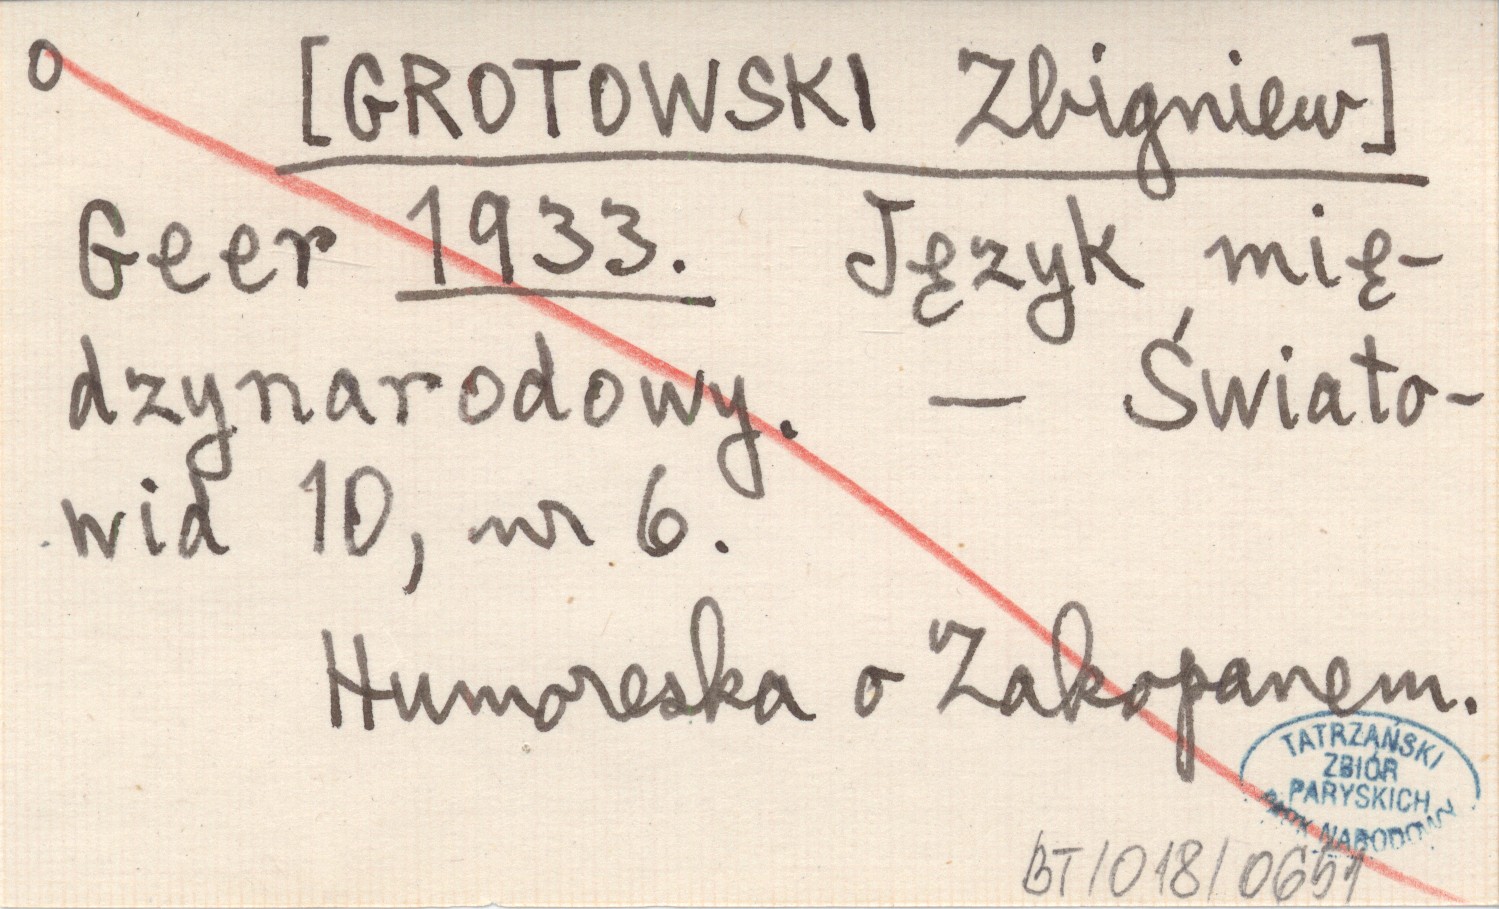 o [GROTOWSKI Zbigniew]
Geer 1933. Język mię-
dzynarodowy. — Świato-
wid 10, nr 6.
Humoreska o Zakopanem.
TATRZAŃSKI
ZBIÓR
PARYSKICH
PARK NARODOWY
BT/018/0651